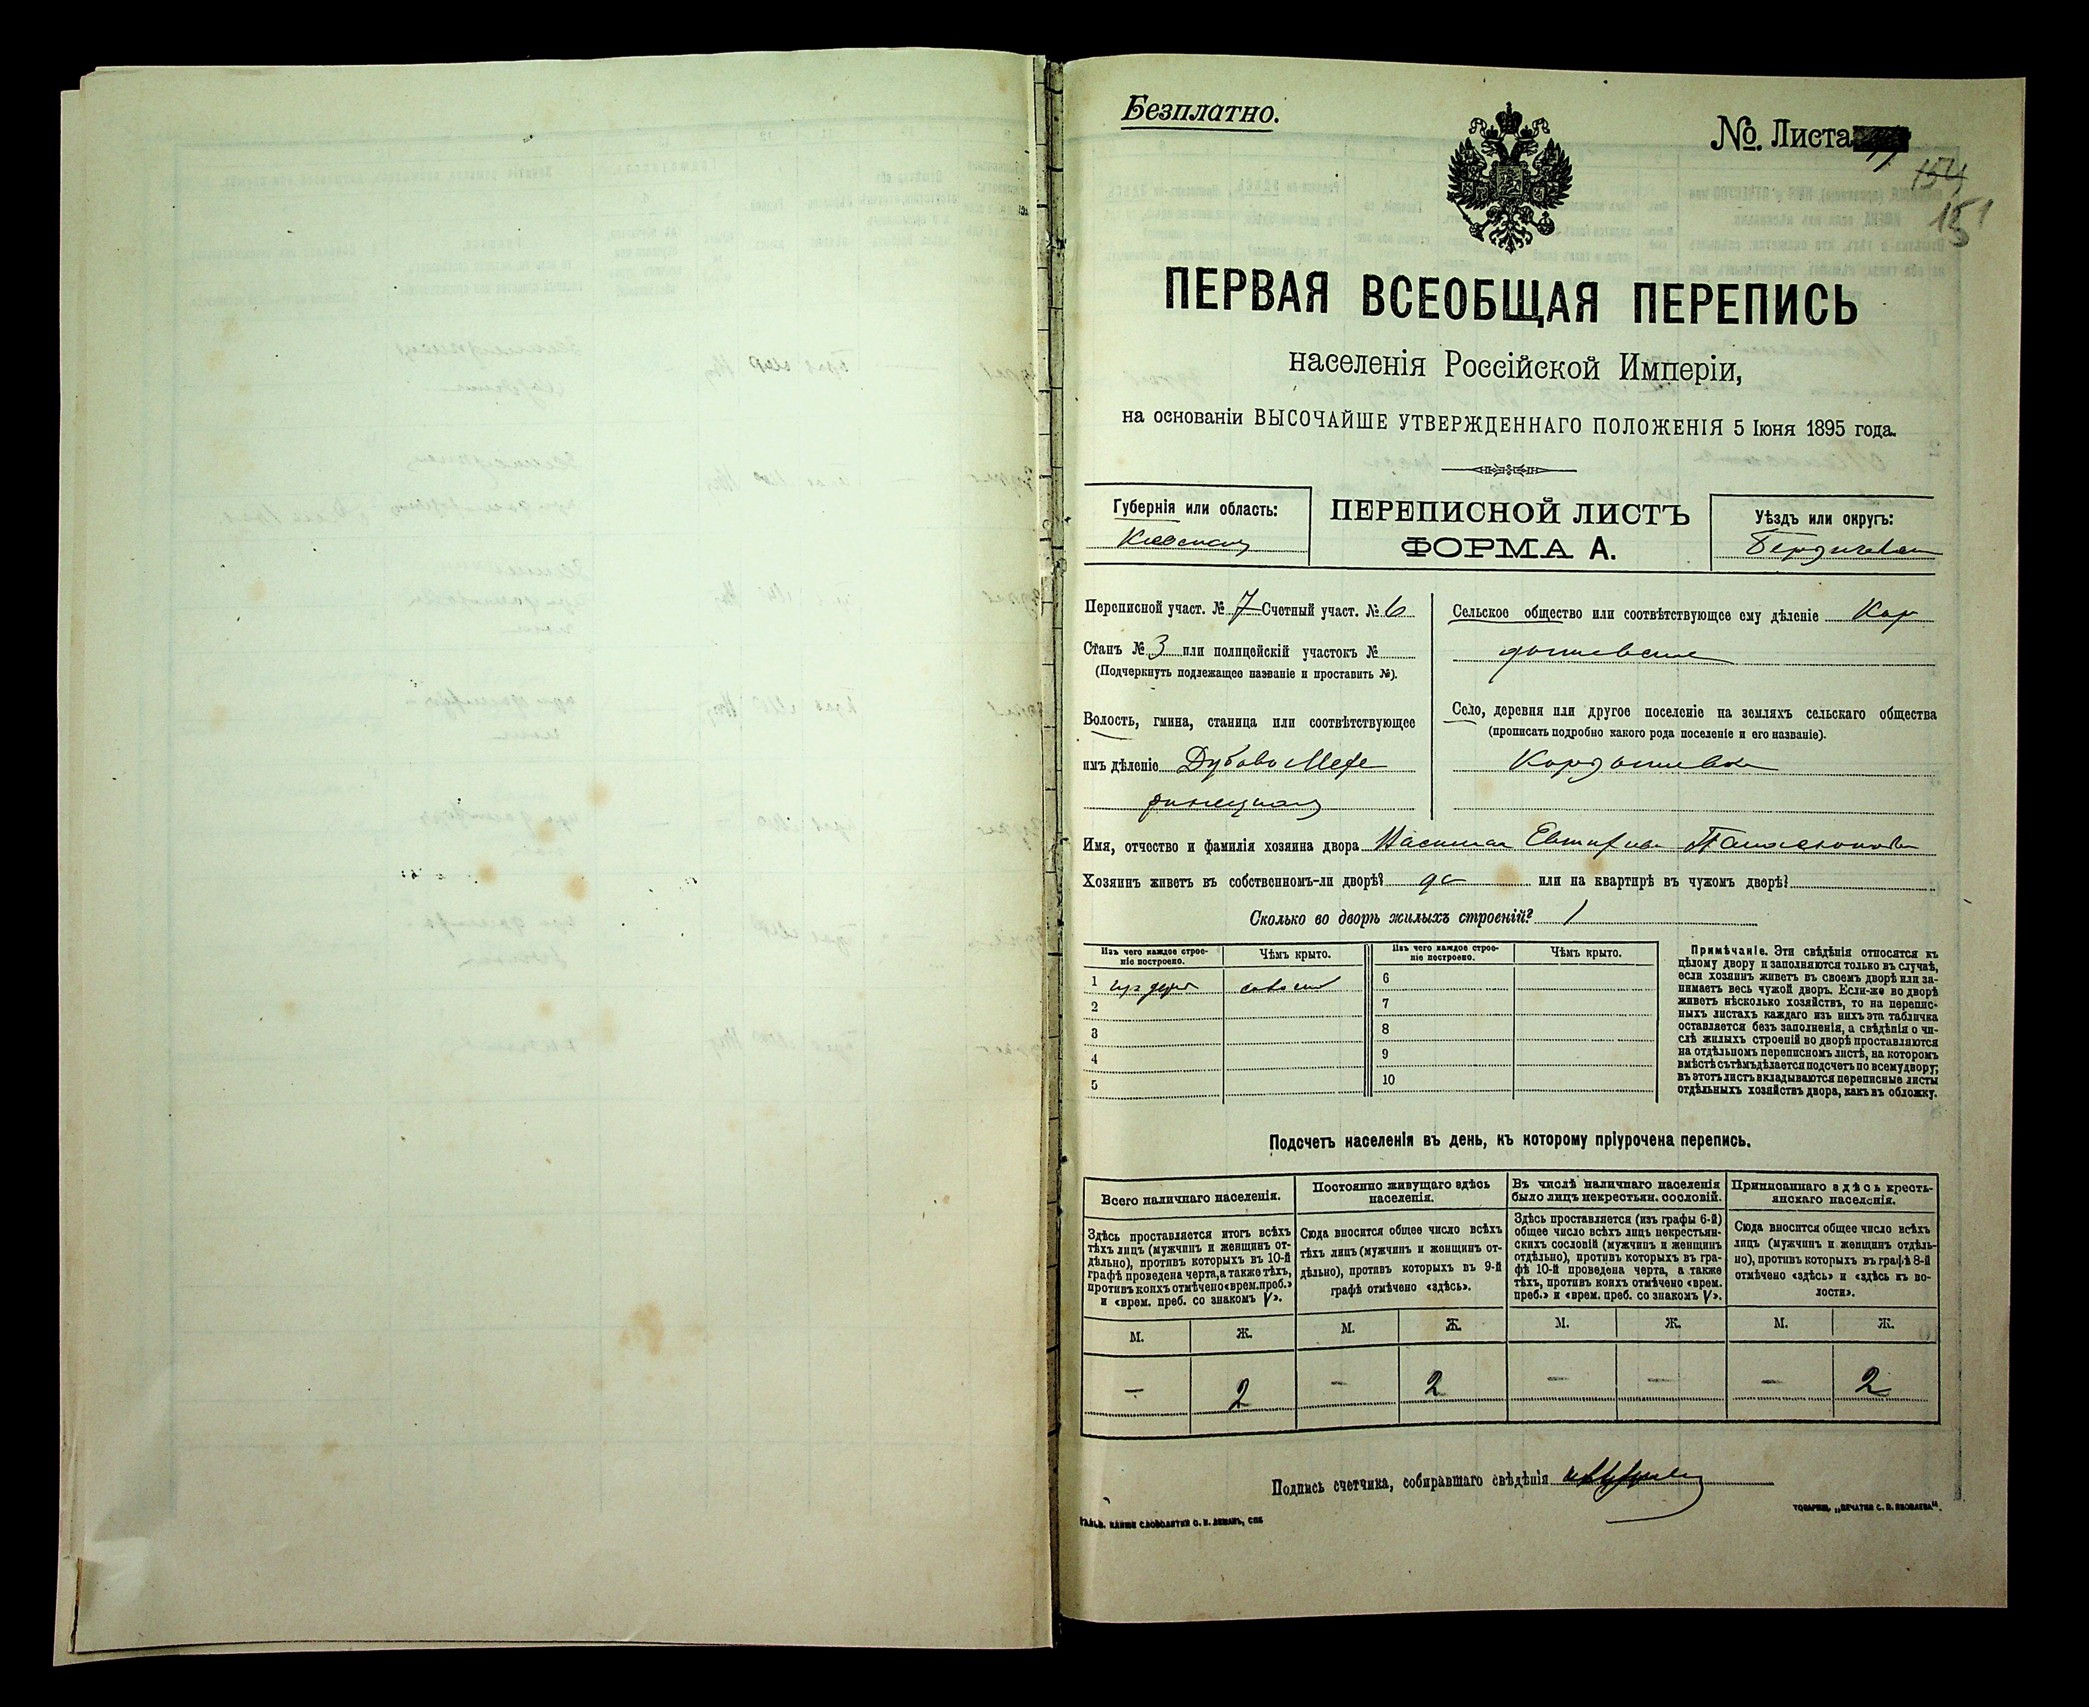 Безплатно.
№. Листа
154
151
ПЕРВАЯ ВСЕОБЩАЯ ПЕРЕПИСЬ
населенія Россійской Имперіи,
на основаніи ВЫСОЧАЙШЕ УТВЕРЖДЕННАГО ПОЛОЖЕНІЯ 5 Іюня 1895 года.
Губернія или область:
Киевская
ПЕРЕПИСНОЙ ЛИСТЪ
ФОРМА А.
Уѣздъ или округъ:
Бердичевскій
Переписной участ. № 7 Счетный участ. № 6
Станъ № 3 или полицейскій участокъ №
(Подчеркнуть подлежащее названіе и проставить №).
Волость, гмина, станица или соотвѣтствующее
имъ дѣленіе Дубово Меже
ринецкая
Сельское общество или соотвѣтствующее ему дѣленіе Кор
дышевское
Село, деревня или другое поселеніе на земляхъ сельскаго общества
(прописать подробно какого рода поселеніе и его названіе).
Кордышевка
Имя, отчество и фамилія хозяина двора
Хозяинъ живетъ въ собственномъ-ли дворѣ? да или на квартирѣ въ чужомъ дворѣ?
Сколько во дворѣ жилыхъ строеній? 1
Изъ чего каждое строе-
ніе построено.
Чѣмъ крыто.
Изъ чего каждое строе-
ніе построено.
Чѣмъ крыто.
1 изъ дерев соломой 6
2 7
3 8
4 9
5 10
Примѣчаніе. Эти свѣдѣнія относятся къ
цѣлому двору и заполняются только въ случаѣ,
если хозяинъ живетъ въ своемъ дворѣ или за-
нимаетъ весь чужой дворъ. Если-же во дворѣ
живетъ нѣсколько хозяйствъ, то на перепис-
ныхъ листахъ каждаго изъ нихъ эта табличка
оставляется безъ заполненія, а свѣдѣнія о чи-
слѣ жилыхъ строеній во дворѣ проставляются
на отдѣльномъ переписномъ листѣ, на которомъ
вмѣстѣ съ тѣмъ дѣлается подсчетъ по всему двору;
въ этотъ листъ вкладываются переписные листы
отдѣльныхъ хозяйствъ двора, какъ въ обложку.
Подсчетъ населенія въ день, къ которому пріурочена перепись.
Всего наличнаго населенія.
Здѣсь проставляется итогъ всѣхъ
тѣхъ лицъ (мужчинъ и женщинъ от-
дѣльно), противъ которыхъ въ 10-й
графѣ проведена черта, а также тѣхъ,
противъ коихъ отмѣчено «врем. преб.»
и «врем. преб. со знакомъ V».
Постоянно живущаго здѣсь
населенія.
Сюда вносится общее число всѣхъ
тѣхъ лицъ (мужчинъ и женщинъ от-
дѣльно), противъ которыхъ въ 9-й
графѣ отмѣчено «здѣсь».
Въ числѣ наличнаго населенія
было лицъ некрестьян. сословій.
Здѣсь проставляется (изъ графы 6-й)
общее число всѣхъ лицъ некрестьян-
скихъ сословій (мужчинъ и женщинъ
отдѣльно), противъ которыхъ въ гра-
фѣ 10-й проведена черта, а также
тѣхъ, противъ коихъ отмѣчено «врем.
преб.» и «врем. преб. со знакомъ V».
Приписаннаго здѣсь кресть-
янскаго населенія.
Сюда вносится общее число всѣхъ
лицъ (мужчинъ и женщинъ отдѣль-
но), противъ которыхъ въ графѣ 8-й
отмѣчено «здѣсь» и «здѣсь въ во-
лости».
М. Ж. М. Ж. М. Ж. М. Ж.
— 2 — 2 — — — 2
Подпись счетчика, собиравшаго свѣдѣнія
ТОВАРИЩ. „ПЕЧАТНЯ С. П. ЯКОВЛЕВА“.